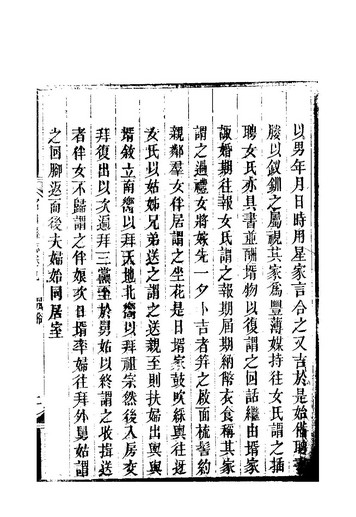 以男年月日時用星家言合之又吉於是始備聘書
媵以釵釧之屬視其家爲豐薄媒持往女氏謂之插
聘女氏亦具書並酬壻物以復謂之回話繼由壻家
諏婚期往報女氏謂之報期屆期納幣衣食稱其家
謂之過禮女將嫁先一夕卜吉者笄之啟面梳髻約
親鄰羣女伴居謂之坐花是日壻家鼓吹綵輿往迓
女氏以姑姊兄弟送之謂之送親至則扶婦出輿與
壻敘立南嚮以拜天地北嚮以拜祖宗然後入房交
拜復出以次遍拜三黨至於舅姑以終謂之收揖送
者伴女不歸謂之伴娘次日壻率婦往拜外舅姑謂
之回腳返而後夫婦始同居室